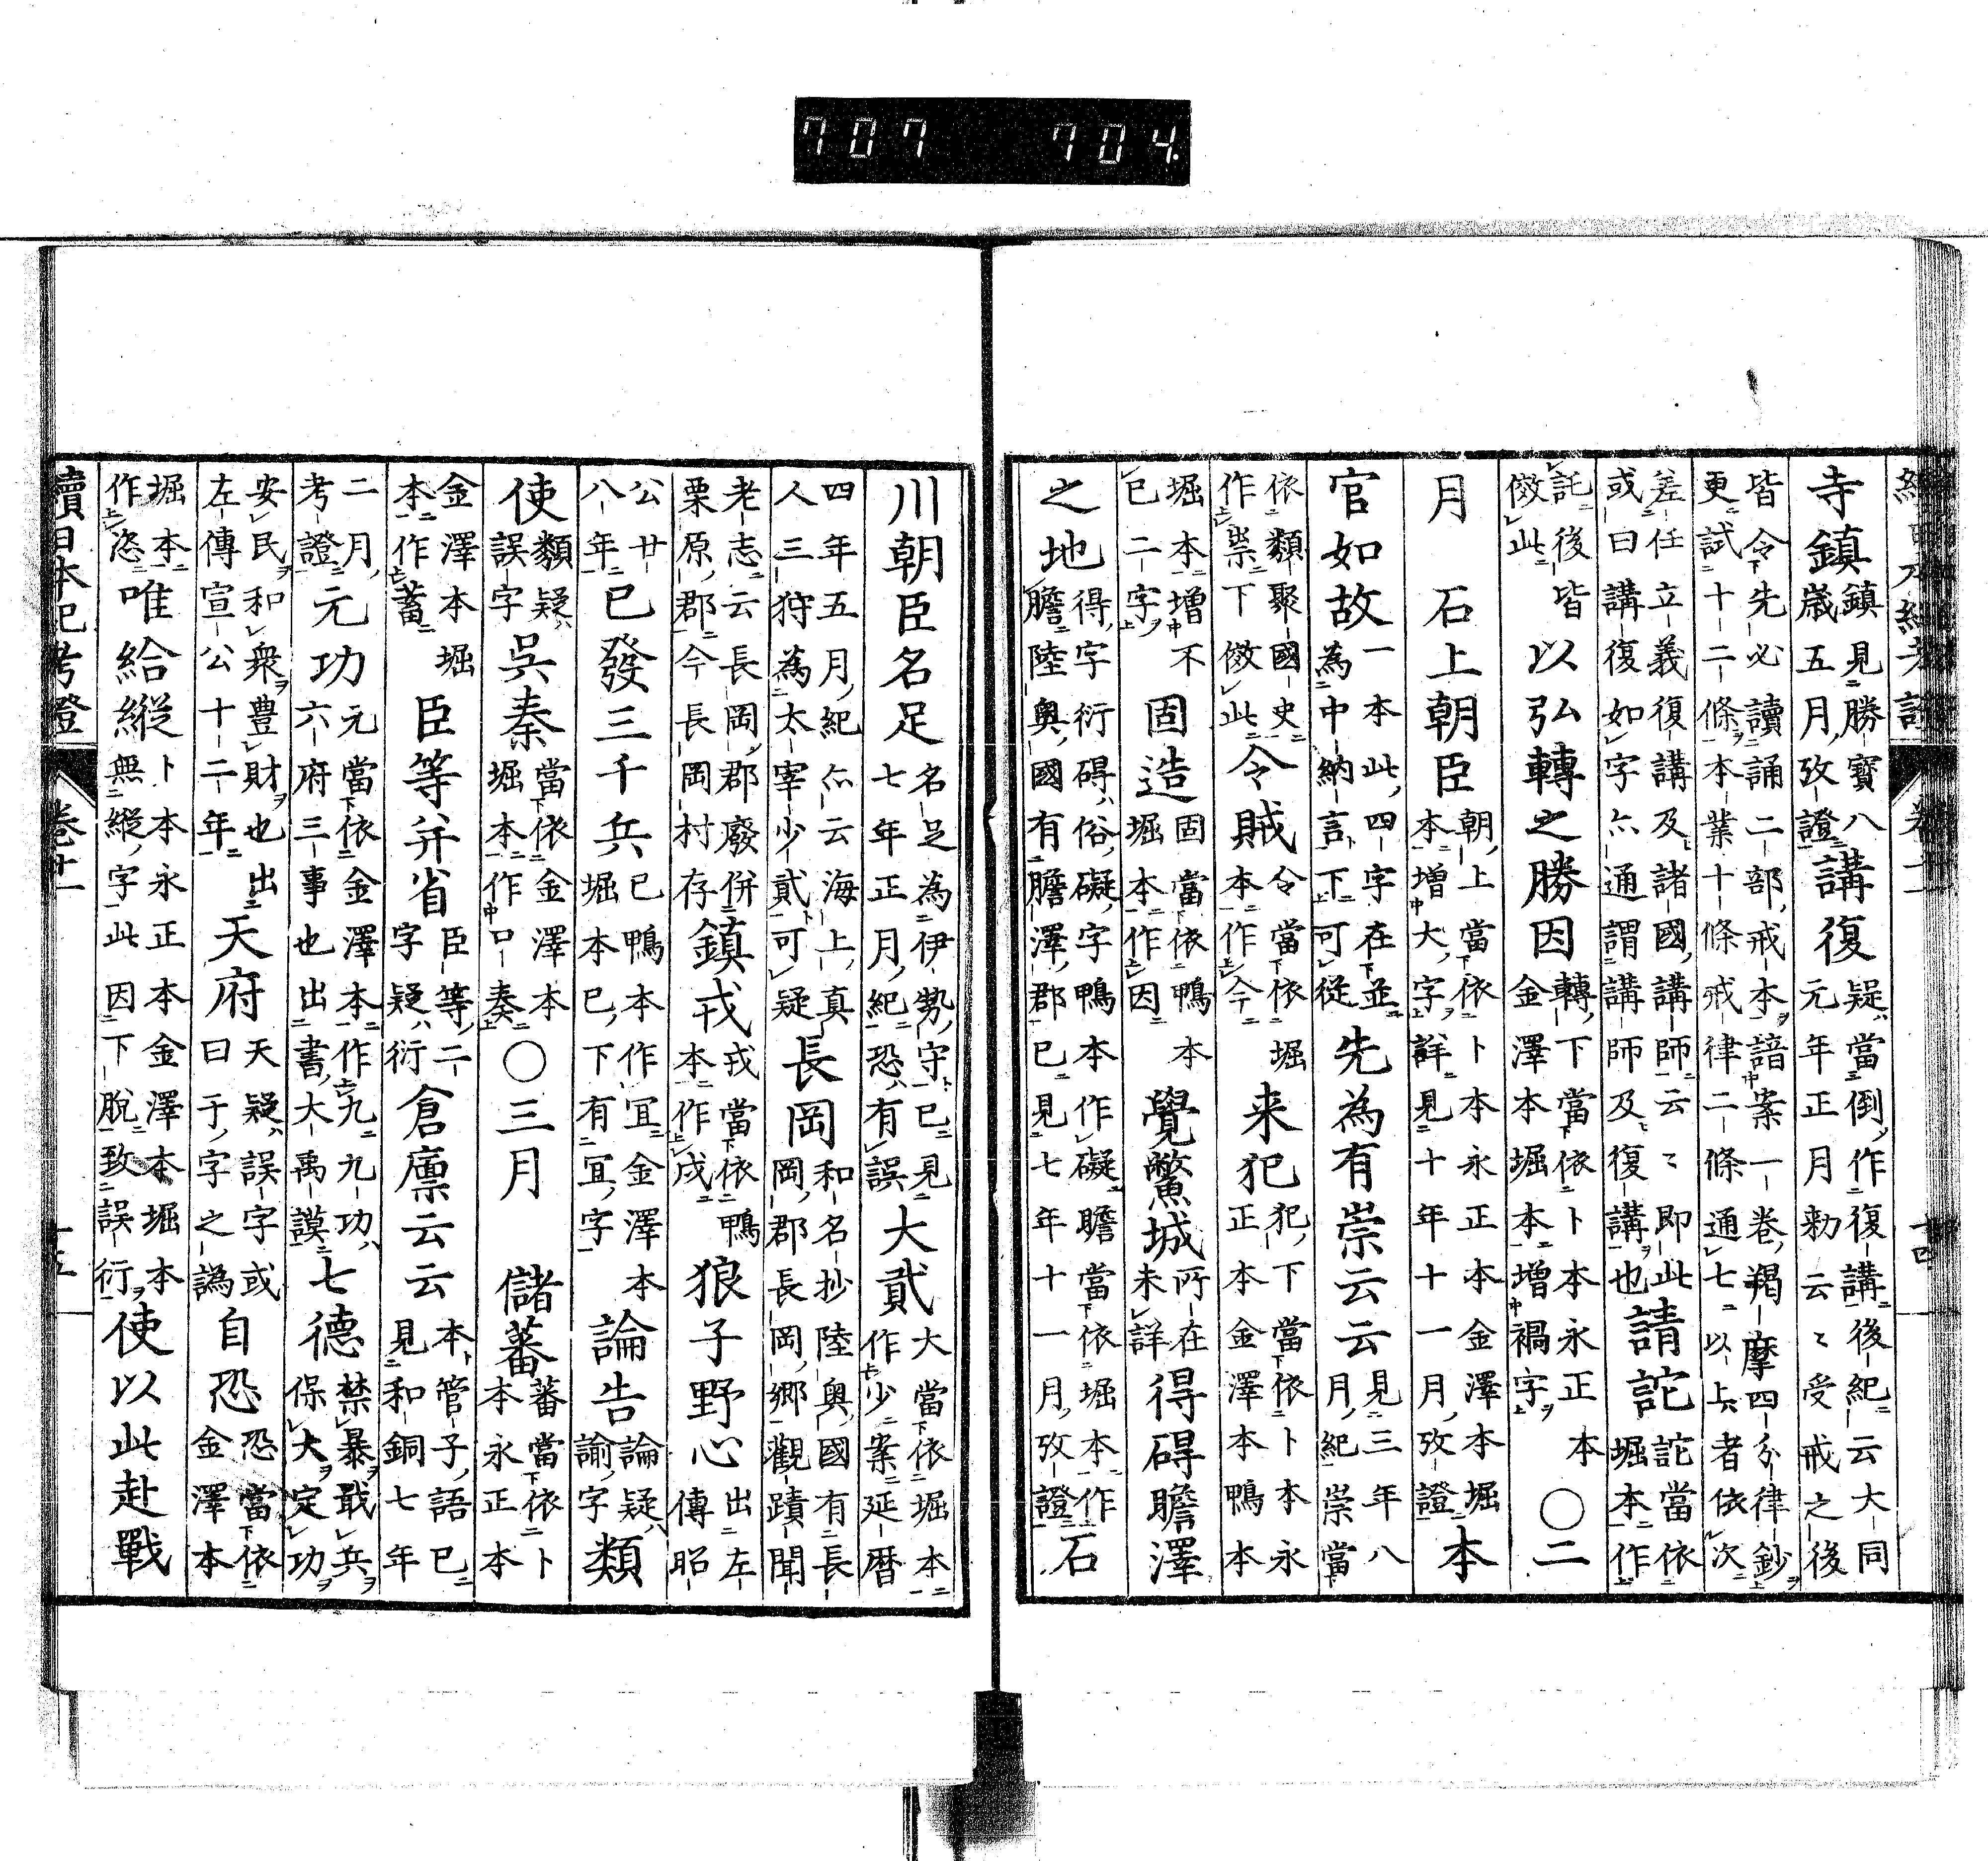 707 704.
寺鎮鎮見勝寶八歲五月攷證講復疑當倒作復講後紀云大同元年正月勅云〻受戒之後
皆令先必讀誦二部戒本諳案一卷羯磨四分律鈔更試十二條本業十條戒律二條通七以上者依次
差任立義復講及諸國講師云〻即此或曰講復如字亦通謂講師及復講也請詑詑當依堀本作
託後皆倣此以弘轉之勝因轉下當依卜本永正本金澤本堀本增禍字〇二
月 石上朝臣朝上當依卜本永正本金澤本堀本增大字詳見十年十一月攷證本
官如故一本此四字在並為中納言下可從先為有崇云云見三年八月紀崇當
依類聚國史作祟下倣此令賊令當依堀本作今来犯犯下當依卜本永正本金澤本鴨本
堀本增不已二字固造固當依鴨本堀本作因覺鱉城所在未詳得碍瞻澤
之地得字衍碍俗礙字鴨本作礙瞻當依堀本作膽陸奥國有膽澤郡已見七年十一月攷證石
川朝臣名足名足為伊勢守已見七年正月紀恐有誤大貳大當依堀本作少案延暦
四年五月紀亦云海上真人三狩為太宰少貳可疑長岡和名抄陸奥國有長岡郡長岡郷觀蹟聞
老志云長岡郡廢併栗原郡今長岡村存鎮戎戎當依鴨本作戍狼子野心出左傳昭
公廿八年已發三千兵已鴨本作冝金澤本堀本已下有冝字論告論疑諭字類
使類疑誤字呉秦當依金澤本堀本作口奏〇三月 儲蕃蕃當依卜本永正本
金澤本堀本作蓄臣等并省臣等二字疑衍倉廩云云本管子語已見和銅七年
二月考證元功元當依金澤本作九九功六府三事也出書大禹謨七德禁暴戢兵保大定功
安民和衆豊財也出左傳宣公十二年天府天疑誤字或曰于字之譌自恐恐當依金澤本
堀本作恣唯給縱卜本永正本金澤本堀本無縱字此因下脫致誤衍使以此赴戰
續日本紀考證 卷十一 十五